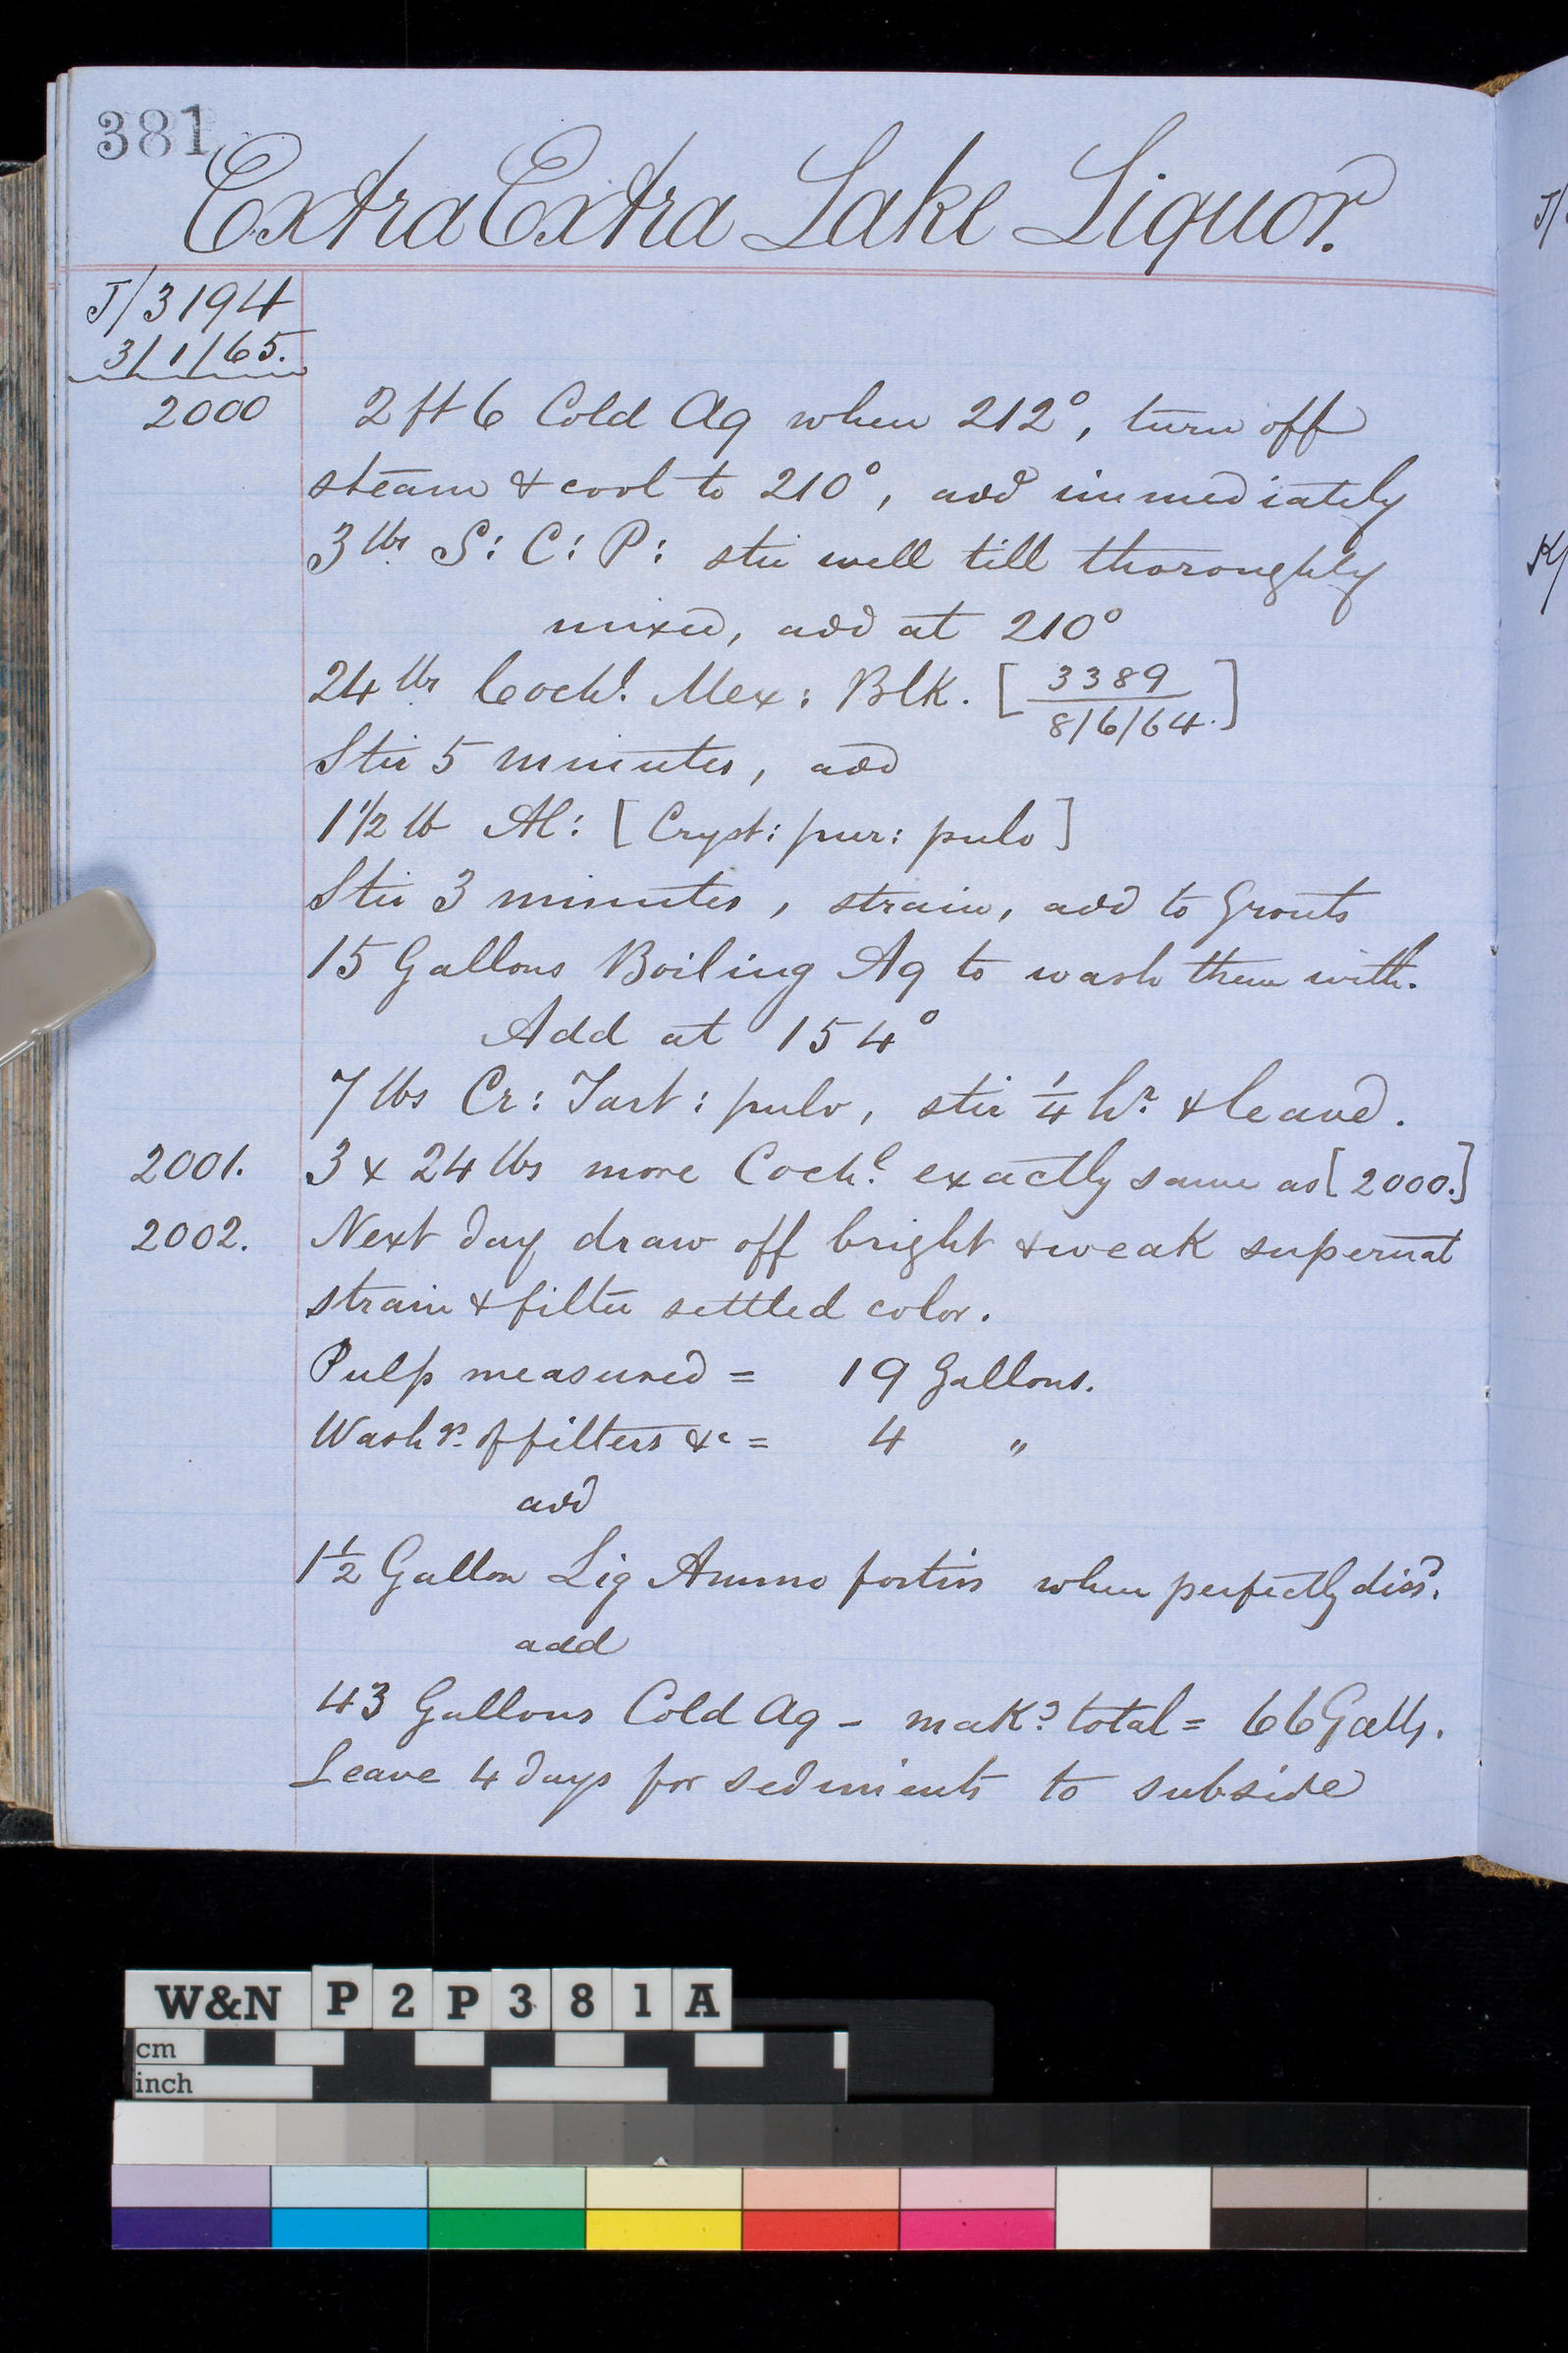 381
Extra Extra Lake Liquor.
J/3194
3/1/65.
2000 2 ft 6 Cold Aq when 212°, turn off
steam & cool to 210°, add immediately
3 lbs S: C: P: stir well till thoroughly
mixed, add at 210°
24 lbs Cochl. Mex: Blk. [3389
8/6/64.]
Stir 5 minutes, add
1 1/2 lb Al: [Cryst: pur: pulv]
Stir 3 minutes, strain, add to Grouts
15 Gallons Boiling Aq to wash them with.
Add at 154°
7 lbs Cr: Tart: pulv, stir 1/4 hr & leave.
2001. 3 x 24 lbs more Cochl. exactly same as [2000.]
2002. Next day draw off bright & weak supernat
strain & filter settled color.
Pulp measured = 19 Gallons.
Washgs. of filters &c = 4 "
add
1 1/2 Gallon Liq Ammo fortiss when perfectly dissd.
add
43 Gallons Cold Aq - makg. total = 66 Galls.
Leave 4 days for sediments to subside
J/
K/
W&N P2P381A
cm
inch